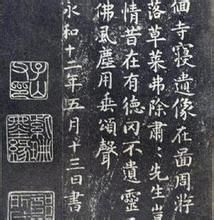 佪寺寢遺像在啚周
落草萊弗除肅〻先生豈
情昔在有德罔不遺靈
佛風塵用垂頌聲
永和十二年五月十三日書